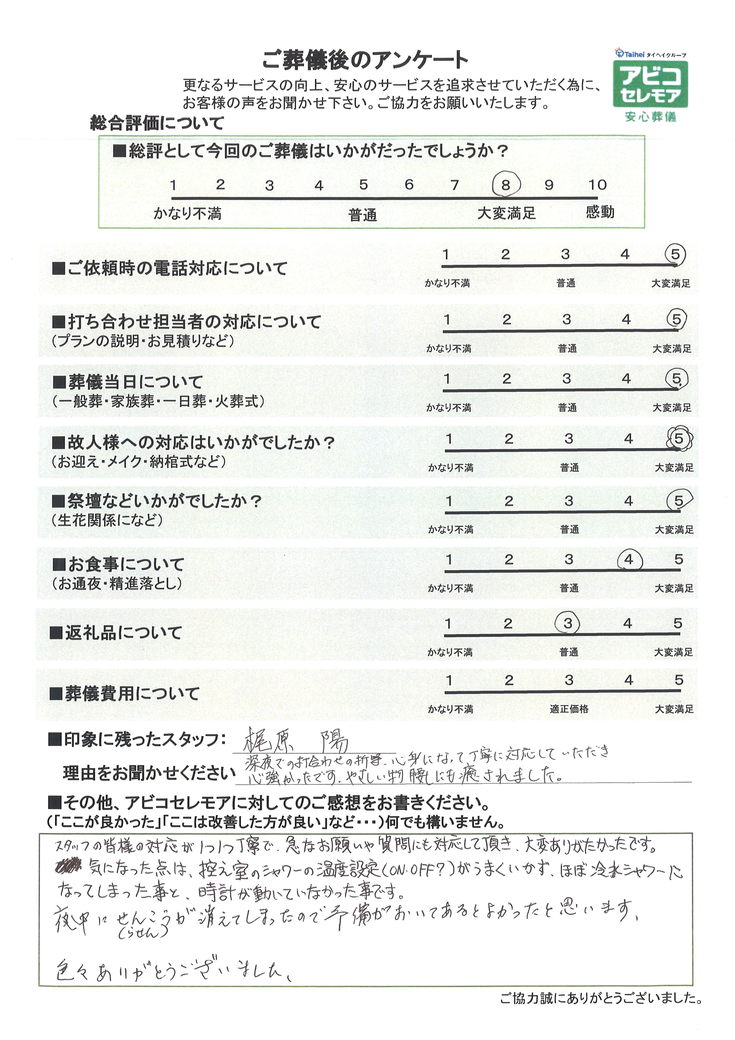 ご葬儀後のアンケート
Taihei タイヘイグループ
アビコ
セレモア
安心葬儀
更なるサービスの向上、安心のサービスを追求させていただく為に、
お客様の声をお聞かせ下さい。ご協力をお願いいたします。
総合評価について
■総評として今回のご葬儀はいかがだったでしょうか？
1 2 3 4 5 6 7 8 9 10
かなり不満 普通 大変満足 感動
■ご依頼時の電話対応について
1 2 3 4 5
かなり不満 普通 大変満足
■打ち合わせ担当者の対応について
（プランの説明・お見積りなど）
1 2 3 4 5
かなり不満 普通 大変満足
■葬儀当日について
（一般葬・家族葬・一日葬・火葬式）
1 2 3 4 5
かなり不満 普通 大変満足
■故人様への対応はいかがでしたか？
（お迎え・メイク・納棺式など）
1 2 3 4 5
かなり不満 普通 大変満足
■祭壇などいかがでしたか？
（生花関係になど）
1 2 3 4 5
かなり不満 普通 大変満足
■お食事について
（お通夜・精進落とし）
1 2 3 4 5
かなり不満 普通 大変満足
■返礼品について
1 2 3 4 5
かなり不満 普通 大変満足
■葬儀費用について
1 2 3 4 5
かなり不満 適正価格 大変満足
■印象に残ったスタッフ： 梶原 陽
理由をお聞かせください
深夜での打合わせの折、心身になって丁寧に対応していただき
心強かったです。やさしい物腰にも癒されました。
■その他、アビコセレモアに対してのご感想をお書きください。
（「ここが良かった」「ここは改善した方が良い」など・・・）何でも構いません。
スタッフの皆様の対応が1つ1つ丁寧で、急なお願いや質問にも対応して頂き、大変ありがたかったです。
気になった点は、控え室のシャワーの温度設定(ON・OFF?)がうまくいかず、ほぼ冷水シャワーに
なってしまった事と、時計が動いていなかった事です。
夜中にせんこうが消えてしまったので予備がおいてあるとよかったと思います。
(らせん)
色々ありがとうございました。
ご協力誠にありがとうございました。